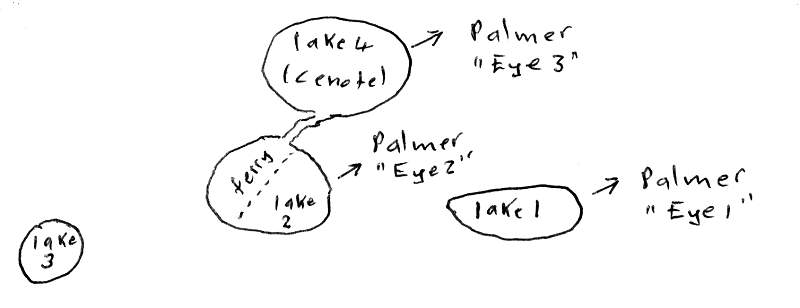 lake 4
(cenote)
Palmer
"Eye 3"
ferry
lake
2
Palmer
"Eye2"
lake 1
Palmer
"Eye1"
lake
3